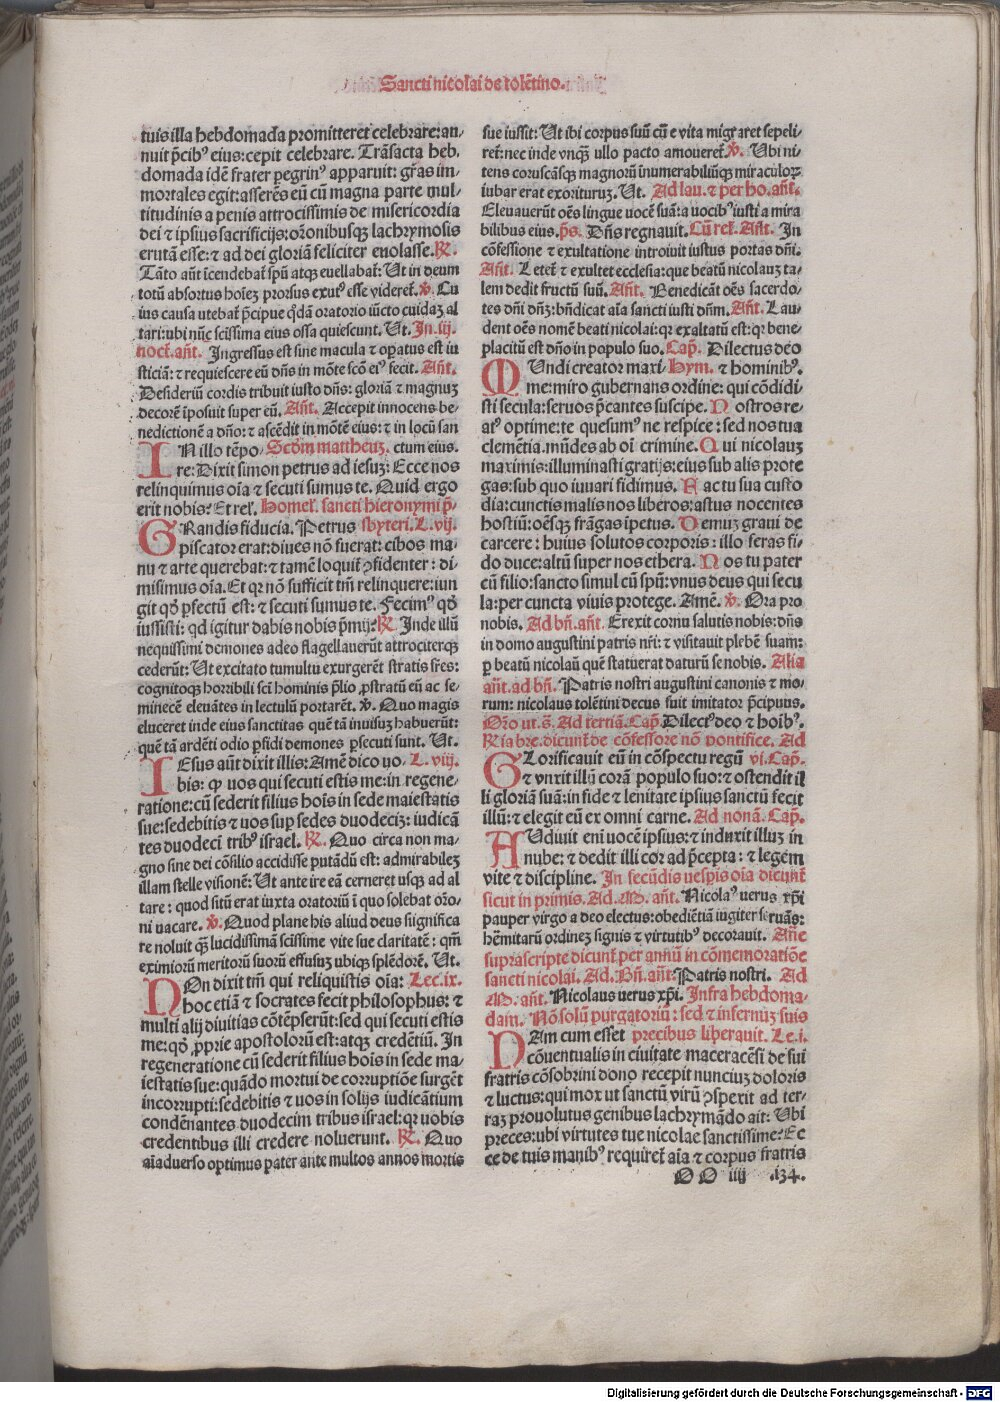 Sancti nicolai de tolētino.
tuis illa hebdomada promitteret celebrare: an-
nuit p̄cibꝰ eius: cepit celebrare. Trāsacta heb,
domada idē frater peregrinꝰ apparuit: gr̄as im-
mortales egit: asserēs eū cū magna parte mul-
titudinis a penis attrocissimis de misericordia
dei ⁊ ipsius sacrificijs: orōnibusqꝫ lachrymosis
erutā esse: ⁊ ad dei gloriā feliciter euolasse. R̄.
Tāto aūt īcendebat̄ sp̄u atqꝫ euellabat̄: Ut in deum
totū absortus hoīeꝫ prorsus exutꝰ esse videret̄. V̄. Cu
ius causa utebat̄ p̄cipue qdā oratorio iūcto cuidaꝫ al
tari: ubi nūc scīssima eius ossa quiescunt. Ut. In .iij.
noct̄. añt. Ingressus est sine macula ⁊ opatus est iu
sticiā: ⁊ requiescere eū dn̄s in mōte scō eiꝰ fecit. Añt.
Desideriū cordis tribuit iusto dn̄s: gloriā ⁊ magnuꝫ
decorē īposuit super eū. Añt. Accepit innocens be-
nedictionē a dn̄o: ⁊ ascēdit in mōtē eius: ⁊ in locū san
IN illo tēpo- Scd̄m mattheuꝫ. ctum eius.
re: Dixit simon petrus ad iesuꝫ: Ecce nos
relinquimus oīa ⁊ secuti sumus te. Quid ergo
erit nobis? Et rel̄. Homel̄. sancti hieronymi p̄-
GRandis fiducia. Petrus sbyteri. L. vij.
piscator erat: diues nō fuerat: cibos ma-
nu ⁊ arte querebat: ⁊ tamē loquit̄ ꝯfidenter: di-
misimus oīa. Et qꝛ nō sufficit tm̄ relinquere: iun
git qd̄ ꝑfectū est: ⁊ secuti sumus te. Fecimꝰ qd̄
iussisti: qd igitur dabis nobis p̄mij? R̄. Inde illū
nequissimi demones adeo flagellauerūt attrociterqꝫ
cederūt: Ut excitato tumultu exurgerēt stratis fr̄es:
cognitoqꝫ horribili scī hominis p̄lio ꝓstratū eū ac se-
minecē eleuātes in lectulū portarēt. V̄. Quo magis
eluceret inde eius sanctitas quē tā inuisuꝫ habuerūt:
quē tā ardēti odio ꝑfidi demones ꝑsecuti sunt. Ut.
IEsus aūt dixit illis: Amē dico uo- L. viij.
bis: ꝙ uos qui secuti estis me: in regene-
ratione: cū sederit filius hoīs in sede maiestatis
sue: sedebitis ⁊ uos sup sedes duodeciꝫ: iudicā
tes duodecī tribꝰ israel. R̄. Quo circa non ma-
gno sine dei cōsilio accidisse putādū est: admirabileꝫ
illam stelle visionē: Ut ante ire eā cerneret usqꝫ ad al
tare: quod sitū erat iuxta oratoriū ī quo solebat orō-
ni uacare. V̄. Quod plane his aliud deus siignifica
re noluit qꝫ lucidissimā scīssime vite sue claritatē: qm̄
eximiorū meritorū suorū effusuꝫ ubiqꝫ splēdorē. Ut.
NOn dixit tm̄ qui reliquistis oīa: Lec. ix.
hoc etiā ⁊ socrates fecit philosophus: ⁊
multi alij diuitias cōtēpserūt: sed qui secuti estis
me: qd̄ ꝓprie apostolorū est: atqꝫ credētiū. In
regeneratione cū sederit filius hoīs in sede ma-
iestatis sue: quādo mortui de corruptiōe surgēt
incorrupti: sedebitis ⁊ uos in solijs iudicātium
condēnantes duodecim tribus israel: qꝛ uobis
credentibus illi credere noluerunt. R̄. Quo
aīaduerso optimus pater ante multos annos mortis
sue iussit: Ut ibi corpus suū cū e vita migraret sepeli-
ret̄: nec inde vnqꝫ ullo pacto amoueret̄. V̄. Ubi ni-
tens coruscāsqꝫ magnorū inumerabiliūqꝫ miraculoꝝ
iubar erat exorituruꝫ. Ut. Ad lau. ⁊ per ho. añt.
Eleuauerūt oēs lingue uocē suā: a uocibꝰ iusti a mira
bilibus eius. p̄s. Dn̄s regnauit. Cū rel̄. Añt. In
cōfessione ⁊ exultatione introiuit iustus portas dn̄i.
Añt. Letet̄ ⁊ exultet ecclesia: que beatū nicolauꝫ ta-
lem dedit fructū suū. Añt. Benedicāt oēs sacerdo-
tes dn̄i dn̄ꝫ: bn̄dicat aīa sancti iusti dn̄m. Añt. Lau-
dent oēs nomē beati nicolai: qꝛ exaltatū est: qꝛ bene-
placitū est dn̄o in populo suo. Cap̄. Dilectus deo
MUndi creator maxi- Hym. ⁊ hominibꝰ.
me: miro gubernans ordine: qui cōdidi-
sti secula: seruos p̄cantes suscipe. Nostros re-
atꝰ optime: te quesumꝰ ne respice: sed nos tua
clemētia. mūdes ab oī crimine. Qui nicolauꝫ
maximis: illuminasti gratijs: eius sub alis prote
gas: sub quo iuuari fidimus. Fac tu sua custo
dia: cunctis malis nos liberos: astus nocentes
hostiū: oēsqꝫ frāgas īpetus. Demuꝫ graui de
carcere: huius solutos corporis: illo feras fi-
do duce: altū super nos ethera. Nos tu pater
cū filio: sancto simul cū sp̄u: vnus deus qui secu
la: per cuncta viuis protege. Amē. V̄. Ora pro
nobis. Ad bn̄. añt. Erexit cornu salutis nobis: dn̄s
in domo augustini patris nr̄i: ⁊ visitauit plebē suam:
ꝑ beatū nicolaū quē statuerat daturū se nobis. Alia
añt. ad bn̄. Patris nostri augustini canonis ⁊ mo-
rum: nicolaus tolētini decus fuit imitator p̄cipuus.
Orō ut. s̄. Ad tertiā. Cap̄. Dilectꝰ deo ⁊ hoībꝰ.
R̄ia bre. dicunt̄ de cōfessore nō pontifice. Ad
GLorificauit eū in cōspectu regū vi. Cap̄.
⁊ vnxit illū corā populo suo: ⁊ ostendit il
li gloriā suā: in fide ⁊ lenitate ipsius sanctū fecit
illū: ⁊ elegit eū ex omni carne. Ad nonā. Cap̄.
AUdiuit enī uocē ipsius: ⁊ induxit illuꝫ in
nube: ⁊ dedit illi cor ad p̄cepta: ⁊ legem
vite ⁊ discipline. In secūdis uesp̄is oīa dicunt̄
sicut in primis. Ad. M. añt. Nicolaꝰ uerus xp̄i
pauper virgo a deo electus: obediētiā iugiter seruās:
hēmitarū ordineꝫ signis ⁊ virtutibꝰ decorauit. Añe
suprascripte dicunt̄ per annū in cōmemoratiōe
sancti nicolai. Ad. Bn̄. añt: Patris nostri. Ad
M. añt. Nicolaus uerus xp̄i. Infra hebdoma-
dam. Nō solū purgatoriū: sed ⁊ infernuꝫ suis
NAm cum esset precibus liberauit. Le. i.
cōuentualis in ciuitate maceracēsi de sui
fratris cōsobrini dono recepit nunciuꝫ doloris
⁊ luctus: qui mox ut sanctū virū ꝯspexit ad ter-
raꝫ prouolutus genibus lachrymādo ait: Ubi
preces: ubi virtutes tue nicolae sanctissime? Ec
ce de tuis manibꝰ requiret̄ aīa ⁊ corpus fratris
OO iiij .134.
Digitalisierung gefördert durch die Deutsche Forschungsgemeinschaft - DFG